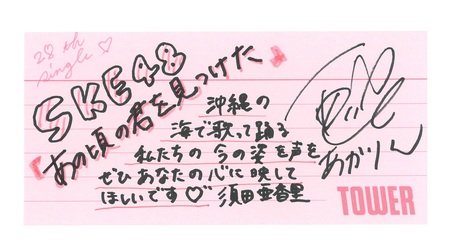 28th
single♡
SKE48
『あの頃の君を見つけた』
沖縄の
海で歌って踊る
私たちの今の姿を声を
ぜひあなたの心に映して
ほしいです♡
須田亜香里
あかりん
TOWER